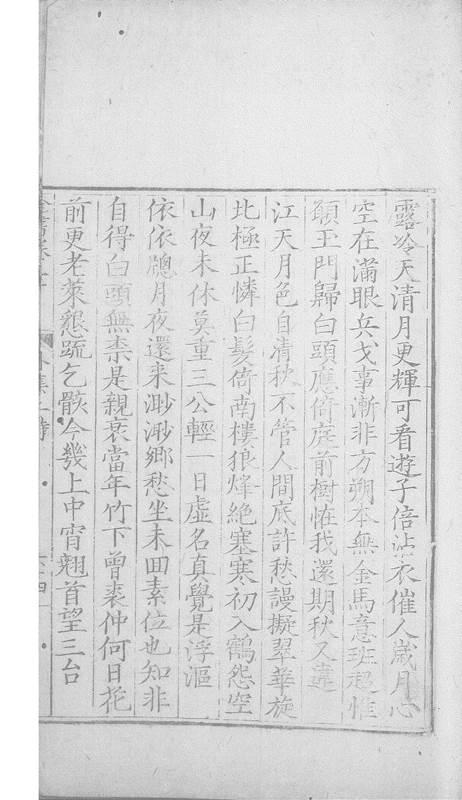 露冷天清月更輝可看遊子倍沾衣催人歲月心
空在滿眼兵戈事漸非方朔本無金馬意班超惟
願玉門歸白頭應倚庭前樹怪我還期秋又違
江天月色自清秋不管人間底許愁謾擬翠華旋
北極正憐白髮倚南樓狼烽絶塞寒初入鶴怨空
山夜未休莫重三公輕一日虛名真覺是浮漚
依依牕月夜還来渺渺鄉愁坐未囬素位也知非
自得白頭無柰是親衰當年竹下曾裘仲何日花
前更老萊懇䟽乞骸今幾上中宵翹首望三台